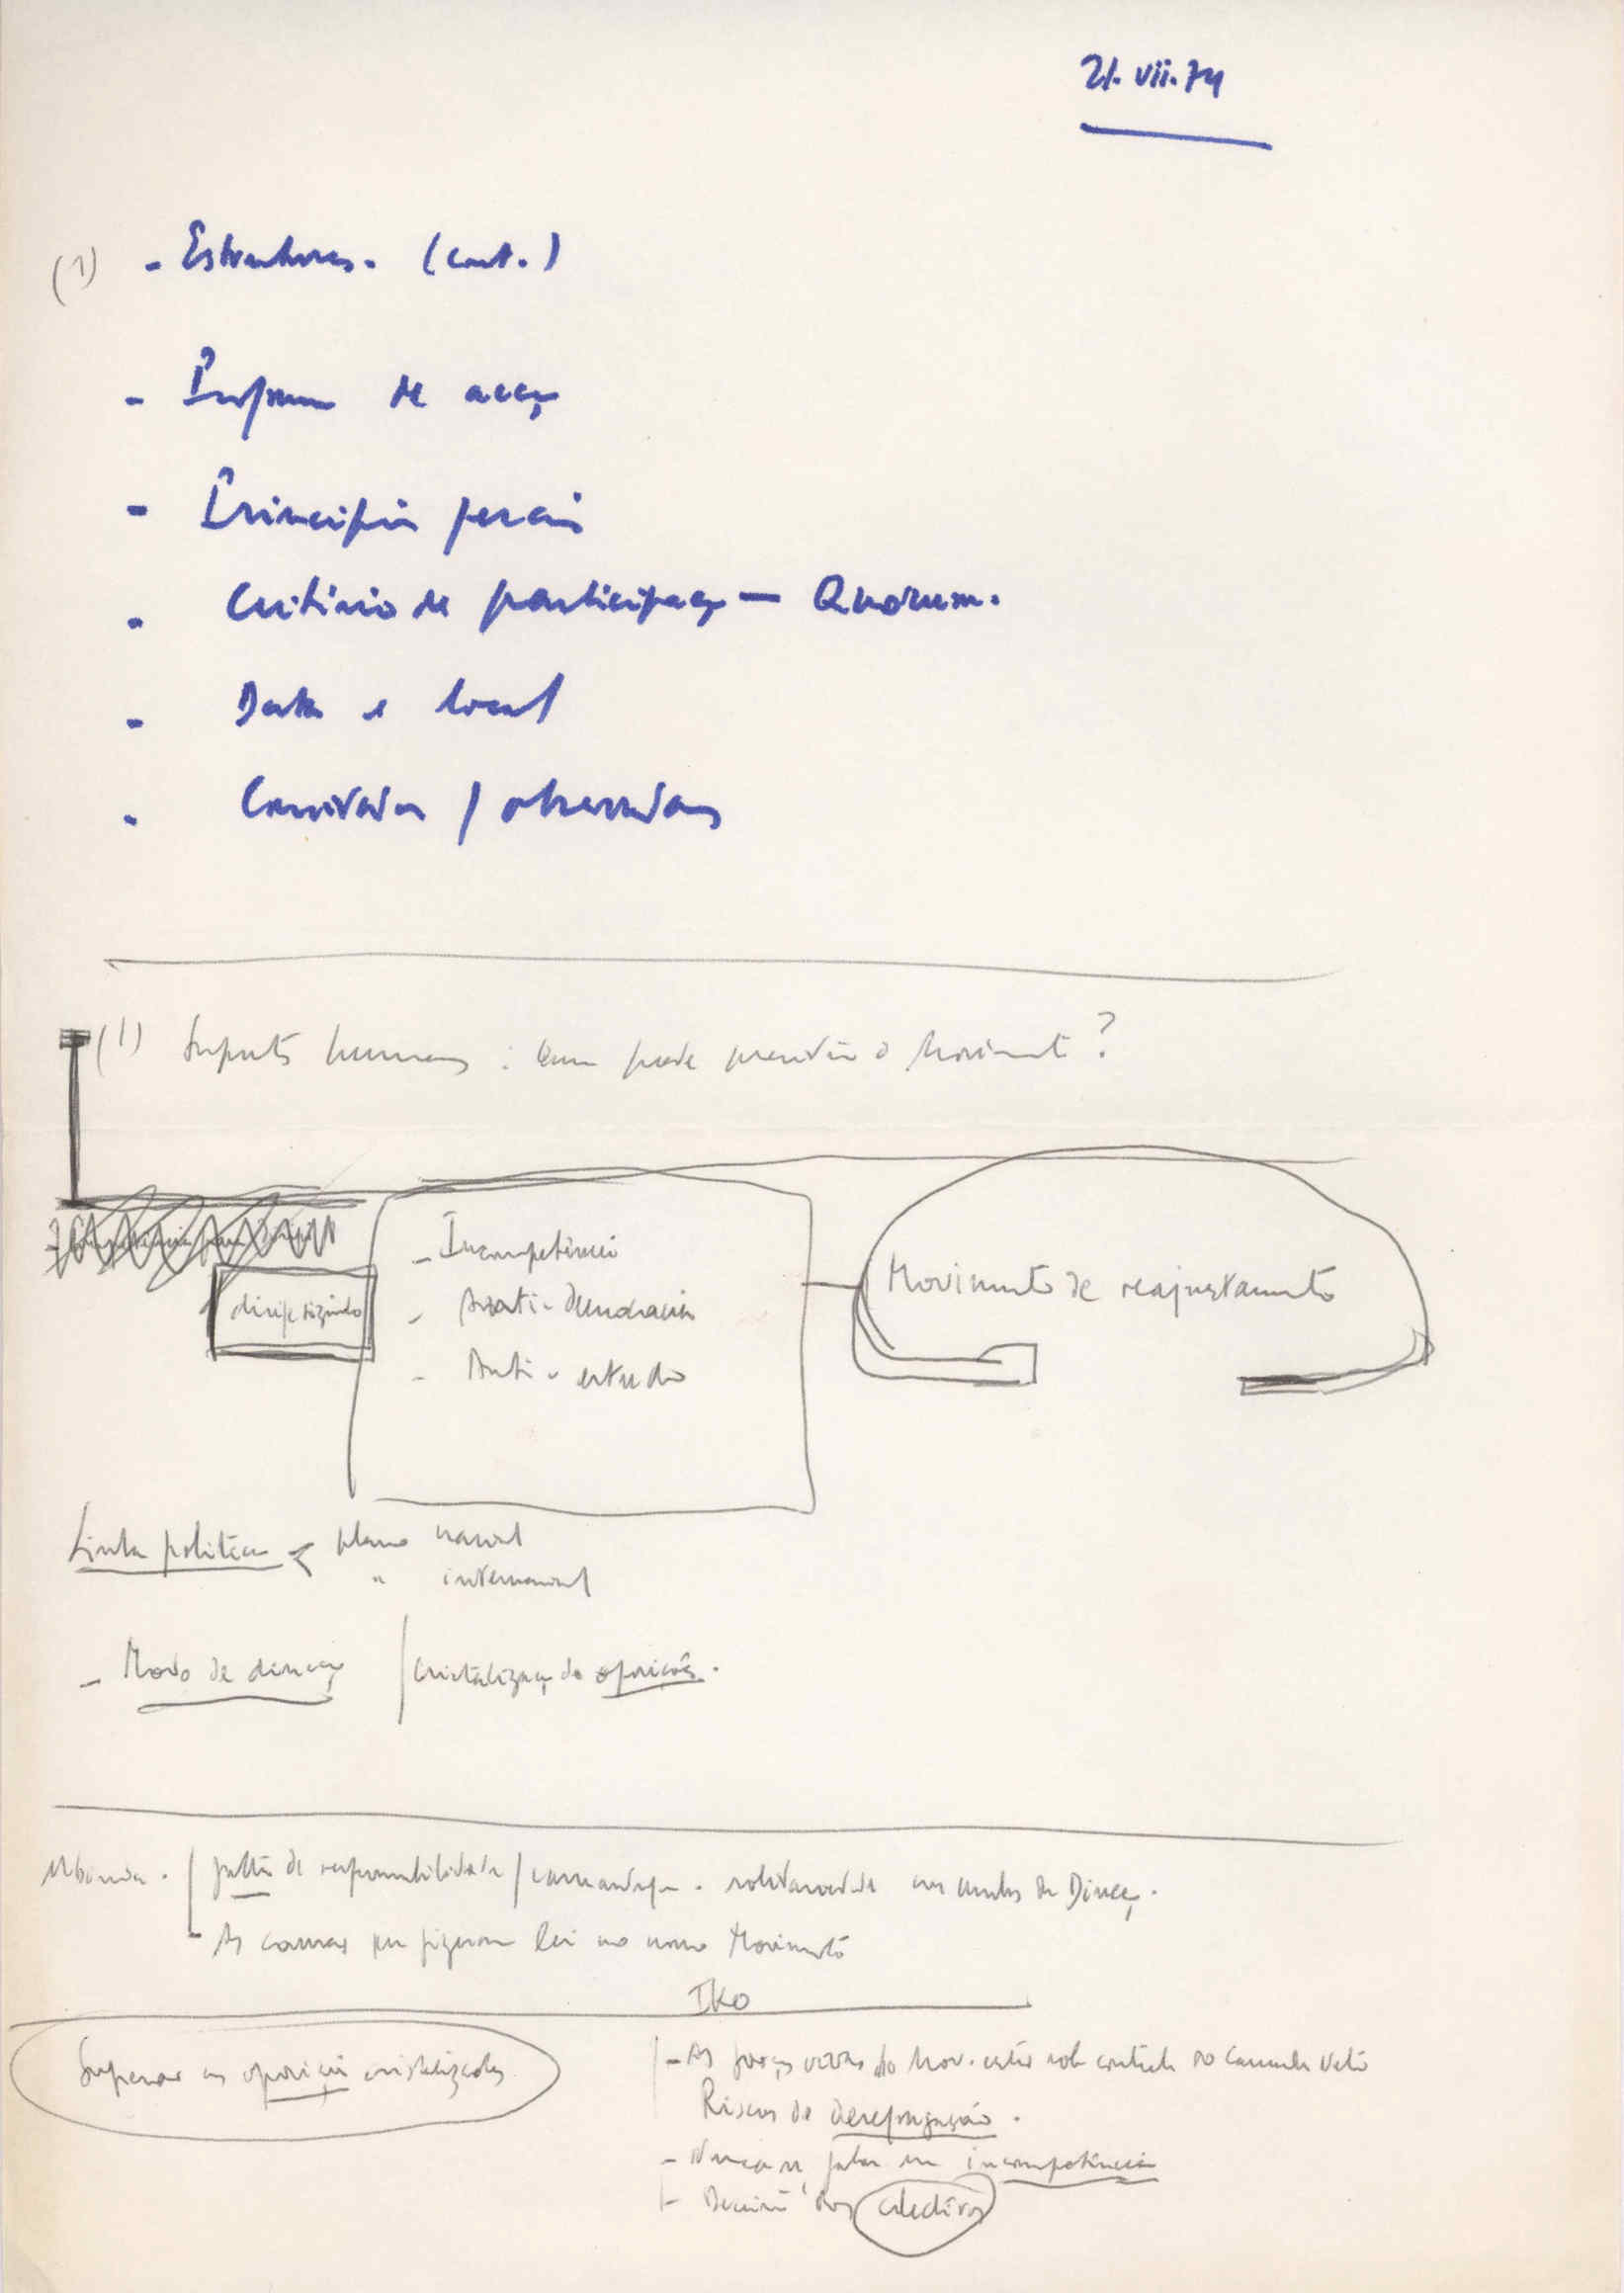 21.vii.74
(1) - Estruturas. (cont.)
- Programa de acção
- Princípios gerais
- Critério de participação — Quorum.
- Data e local
- Convidados / observadores
(1) humanos : Quem pode o Moviment ?
- Incompetência
- Anti-democracia
- Anti - estudo
Movimento de reajustamento
Linha política < plano nacional
" internacional
- Modo de direcção / cristalização de oposições.
falta de responsabilidade / . solidariedade da Direcção.
As causas que fizeram lei no nosso Movimento
IKO
Superar as oposições cristalizadas
- As forças vivas do Mov. estão sob controle do Camarada Neto
Riscos de desagregação.
- falar em incompetência
- dos colectivos